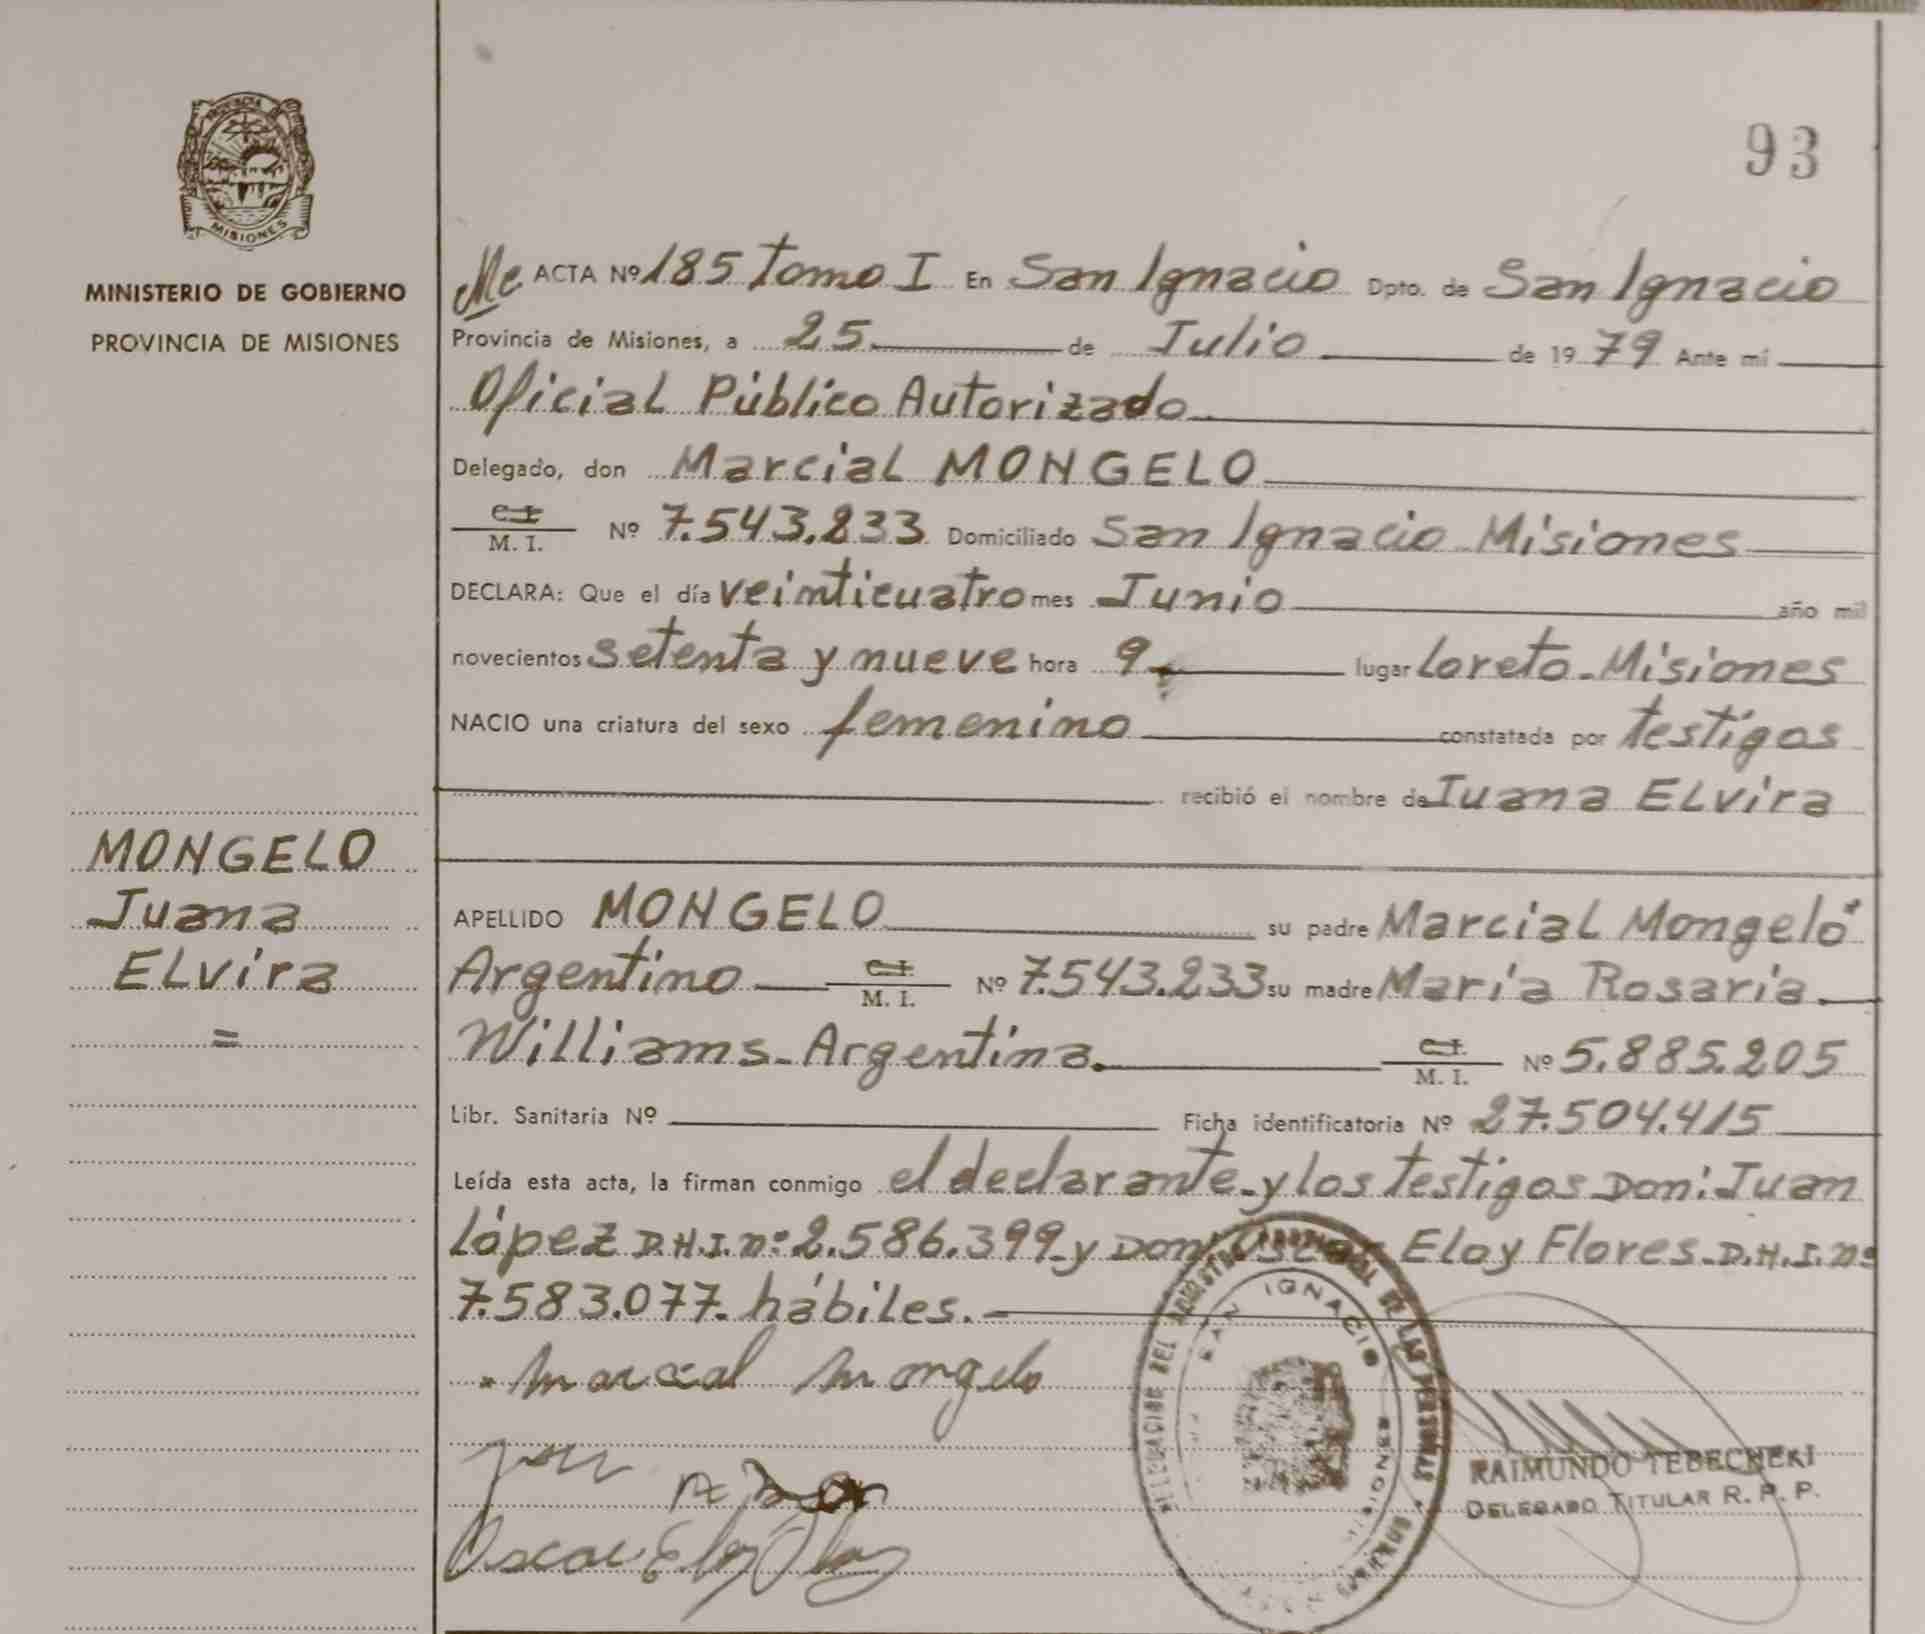 PROVINCIA
MISIONES
MINISTERIO DE GOBIERNO
PROVINCIA DE MISIONES
MONGELO
Juana
ELvira
=
93
ACTA Nº 185 Tomo I En San Ignacio Dpto. de San Ignacio
Provincia de Misiones, a 25 de Julio de 1979 Ante mí
Oficial Público Autorizado
Delegado, don Marcial MONGELO
C.I.
M. I. Nº 7.543.233 Domiciliado San Ignacio Misiones
DECLARA: Que el día veinticuatro mes Junio año mil
novecientos setenta y nueve hora 9. lugar Loreto-Misiones
NACIO una criatura del sexo femenino constatada por testigos
recibió el nombre de Juana ELvira
APELLIDO MONGELO su padre Marcial Mongeló
Argentino C.I.
M. I. Nº 7.543.233 su madre María Rosaria
Williams-Argentina. C.I.
M. I. Nº 5.885.205
Libr. Sanitaria Nº Ficha identificatoria Nº 27.504.415
Leída esta acta, la firman conmigo el declarante y los testigos Don: Juan
López D.H.I. nº 2.586.399 y Don: Oscar Eloy Flores-D.H.I. nº
7.583.077. hábiles.
Marcial Mongelo
Oscar Eloy
DELEGACION DEL REGISTRO PROVINCIAL DE LAS PERSONAS
SAN IGNACIO
RAIMUNDO TEBECHEKI
DELEGADO TITULAR R. P. P.